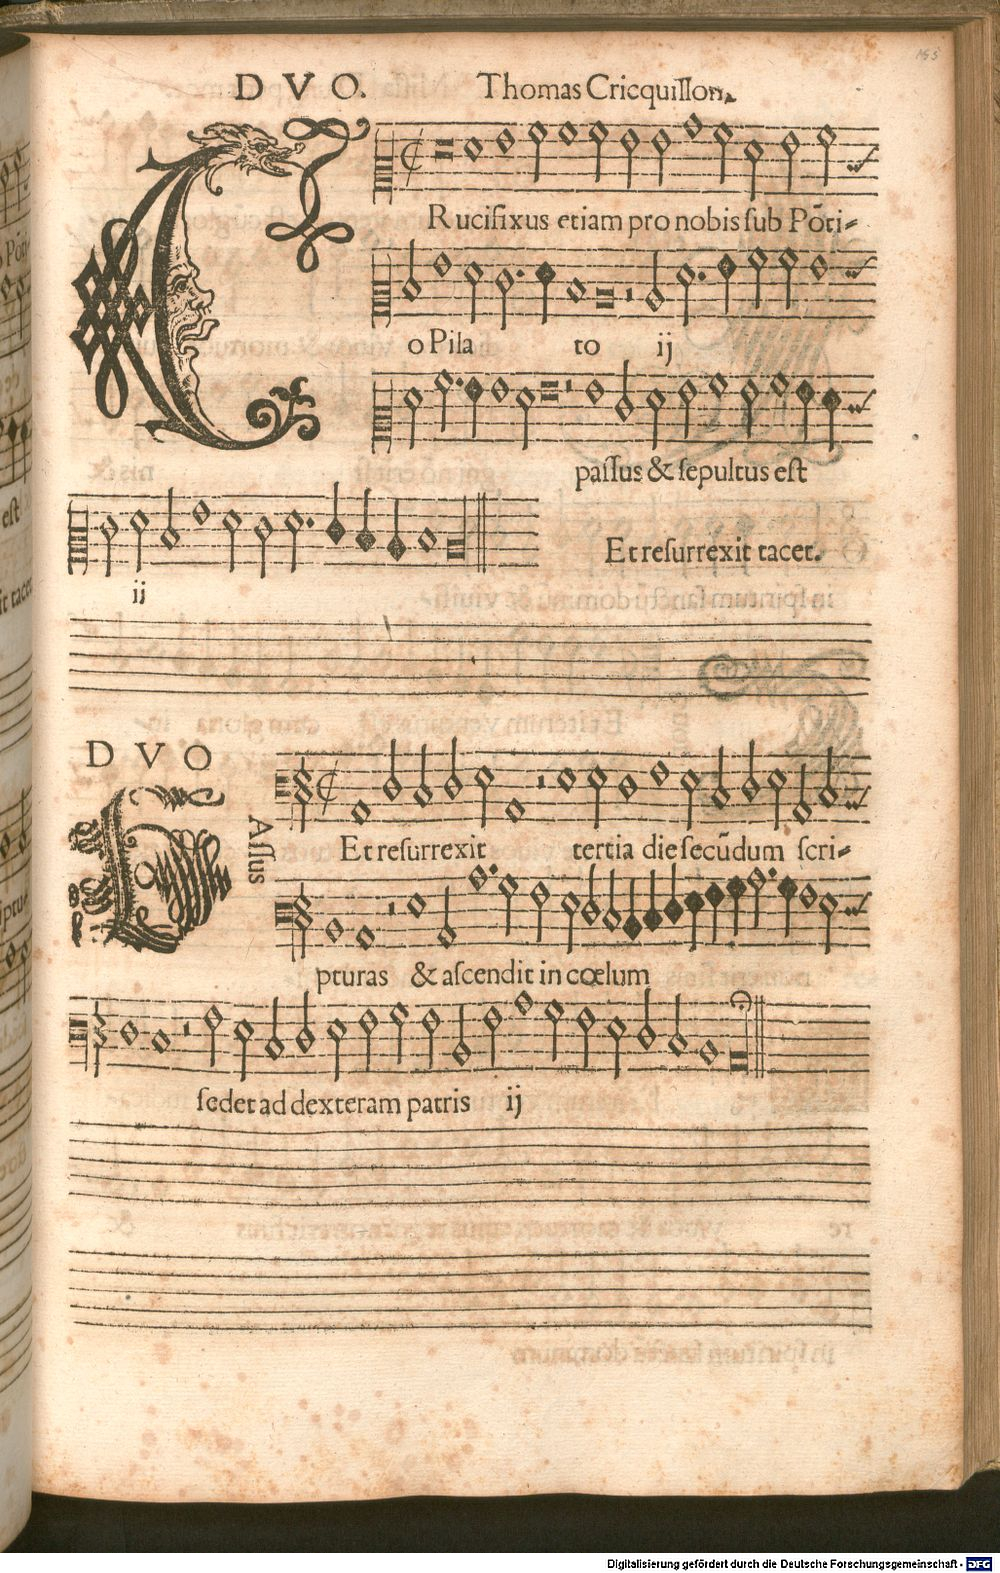 155
D V O. Thomas Cricquillon.
C
Rucifixus etiam pro nobis sub Põti-
o Pila to ij
passus & sepultus est
ij
Et resurrexit tacet.
D V O
Assus
Et resurrexit tertia die secũdum scri-
pturas & ascendit in cœlum
sedet ad dexteram patris ij
Digitalisierung gefördert durch die Deutsche Forschungsgemeinschaft - DFG